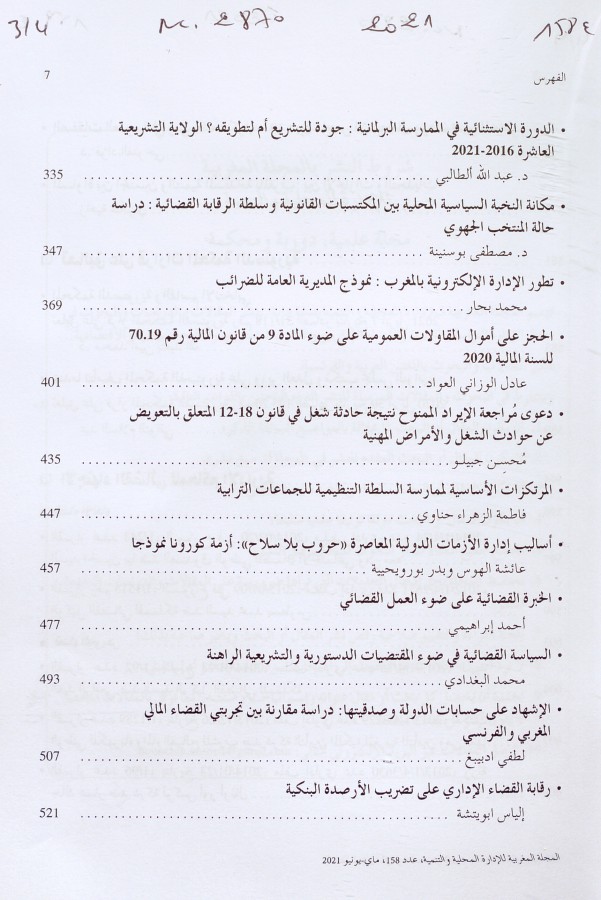 3/4 Mc. 2870 2021 158ع
الفهرس 7
• الدورة الاستثنائية في الممارسة البرلمانية : جودة للتشريع أم لتطويقه ؟ الولاية التشريعية
العاشرة 2016-2021
د. عبد الله ألطالبي 335
• مكانة النخبة السياسية المحلية بين المكتسبات القانونية وسلطة الرقابة القضائية : دراسة
حالة المنتخب الجهوي
د. مصطفى بوسنينة 347
• تطور الإدارة الإلكترونية بالمغرب : نموذج المديرية العامة للضرائب
محمد بحار 369
• الحجز على أموال المقاولات العمومية على ضوء المادة 9 من قانون المالية رقم 70.19
للسنة المالية 2020
عادل الوزاني العواد 401
• دعوى مُراجعة الإيراد الممنوح نتيجة حادثة شغل في قانون 18-12 المتعلق بالتعويض
عن حوادث الشغل والأمراض المهنية
مُحسن جبيلو 435
• المرتكزات الأساسية لممارسة السلطة التنظيمية للجماعات الترابية
فاطمة الزهراء حناوي 447
• أساليب إدارة الأزمات الدولية المعاصرة «حروب بلا سلاح»: أزمة كورونا نموذجا
عائشة الهوس وبدر بورويحيية 457
• الخبرة القضائية على ضوء العمل القضائي
أحمد إبراهيمي 477
• السياسة القضائية في ضوء المقتضيات الدستورية والتشريعية الراهنة
محمد البغدادي 493
• الإشهاد على حسابات الدولة وصدقيتها: دراسة مقارنة بين تجربتي القضاء المالي
المغربي والفرنسي
لطفي ادبيبغ 507
• رقابة القضاء الإداري على تضريب الأرصدة البنكية
إلياس ابويتشة 521
المجلة المغربية للإدارة المحلية والتنمية، عدد 158، ماي-يونيو 2021